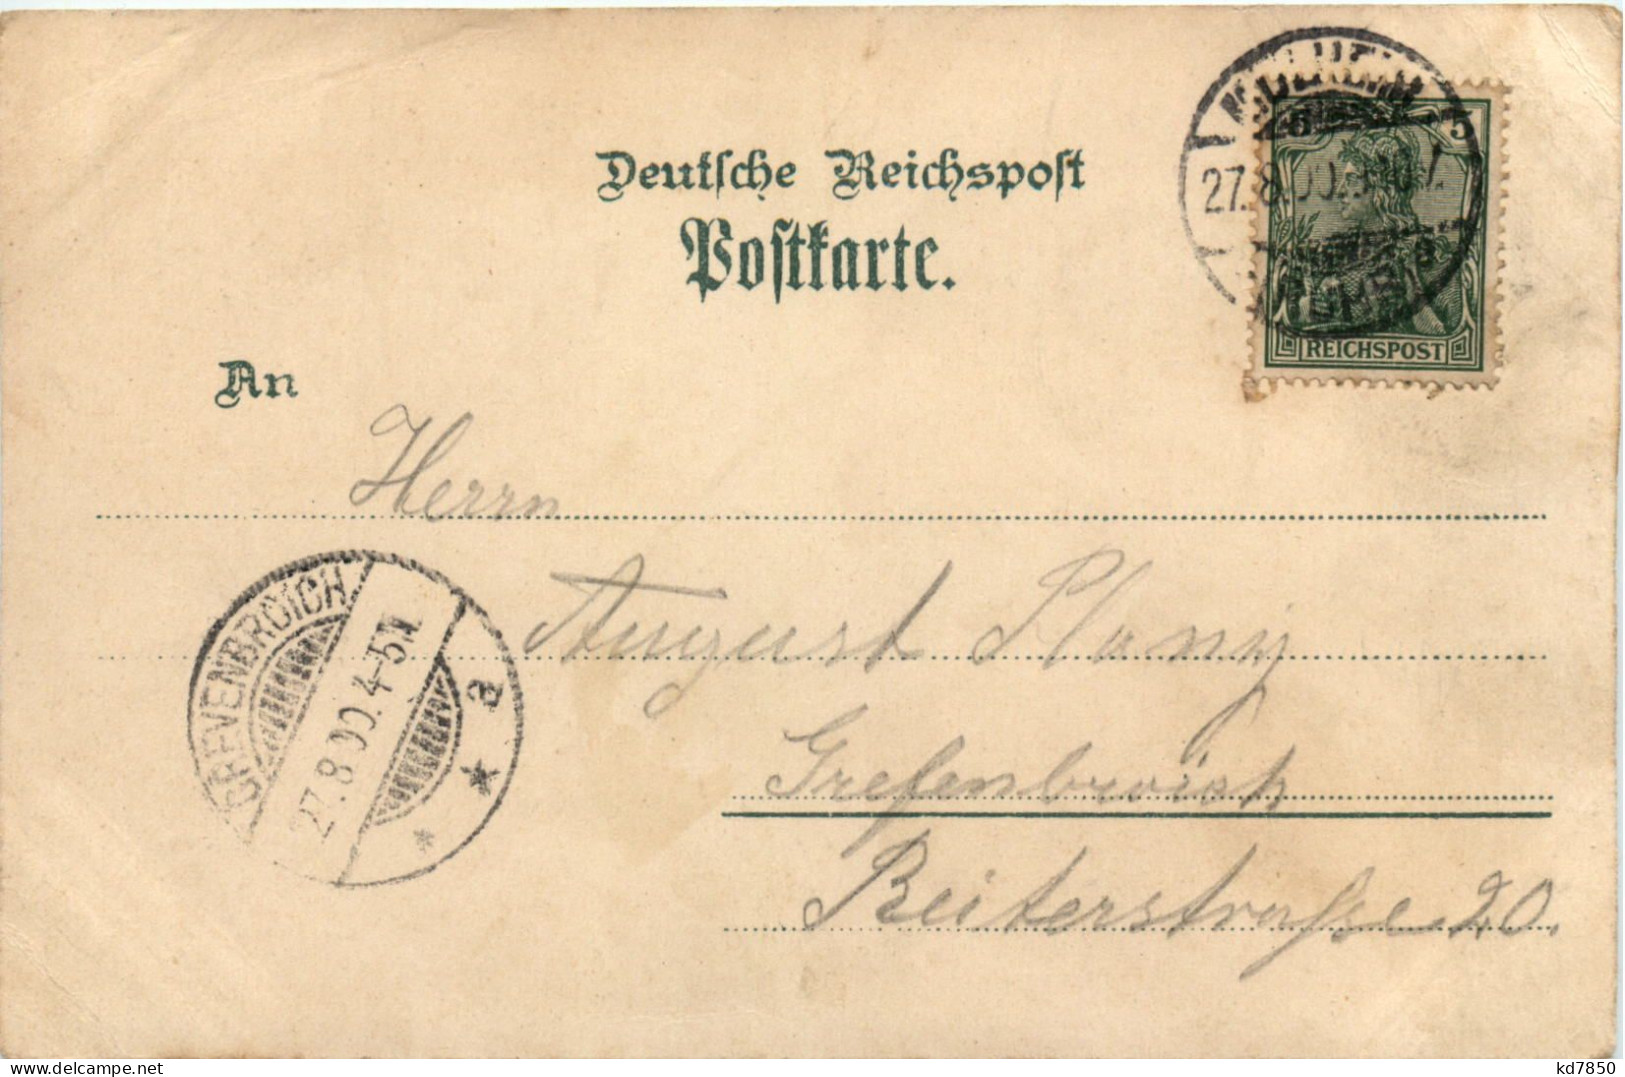 Deutsche Reichspost
Postkarte.
27.8.00.
5 5
REICHSPOST
An
Herrn
August Plany
Grefenbroich
Reiterstraße 20.
GREVENBROICH
27.8.00.4-5N
a
www.delcampe.net
kd7850